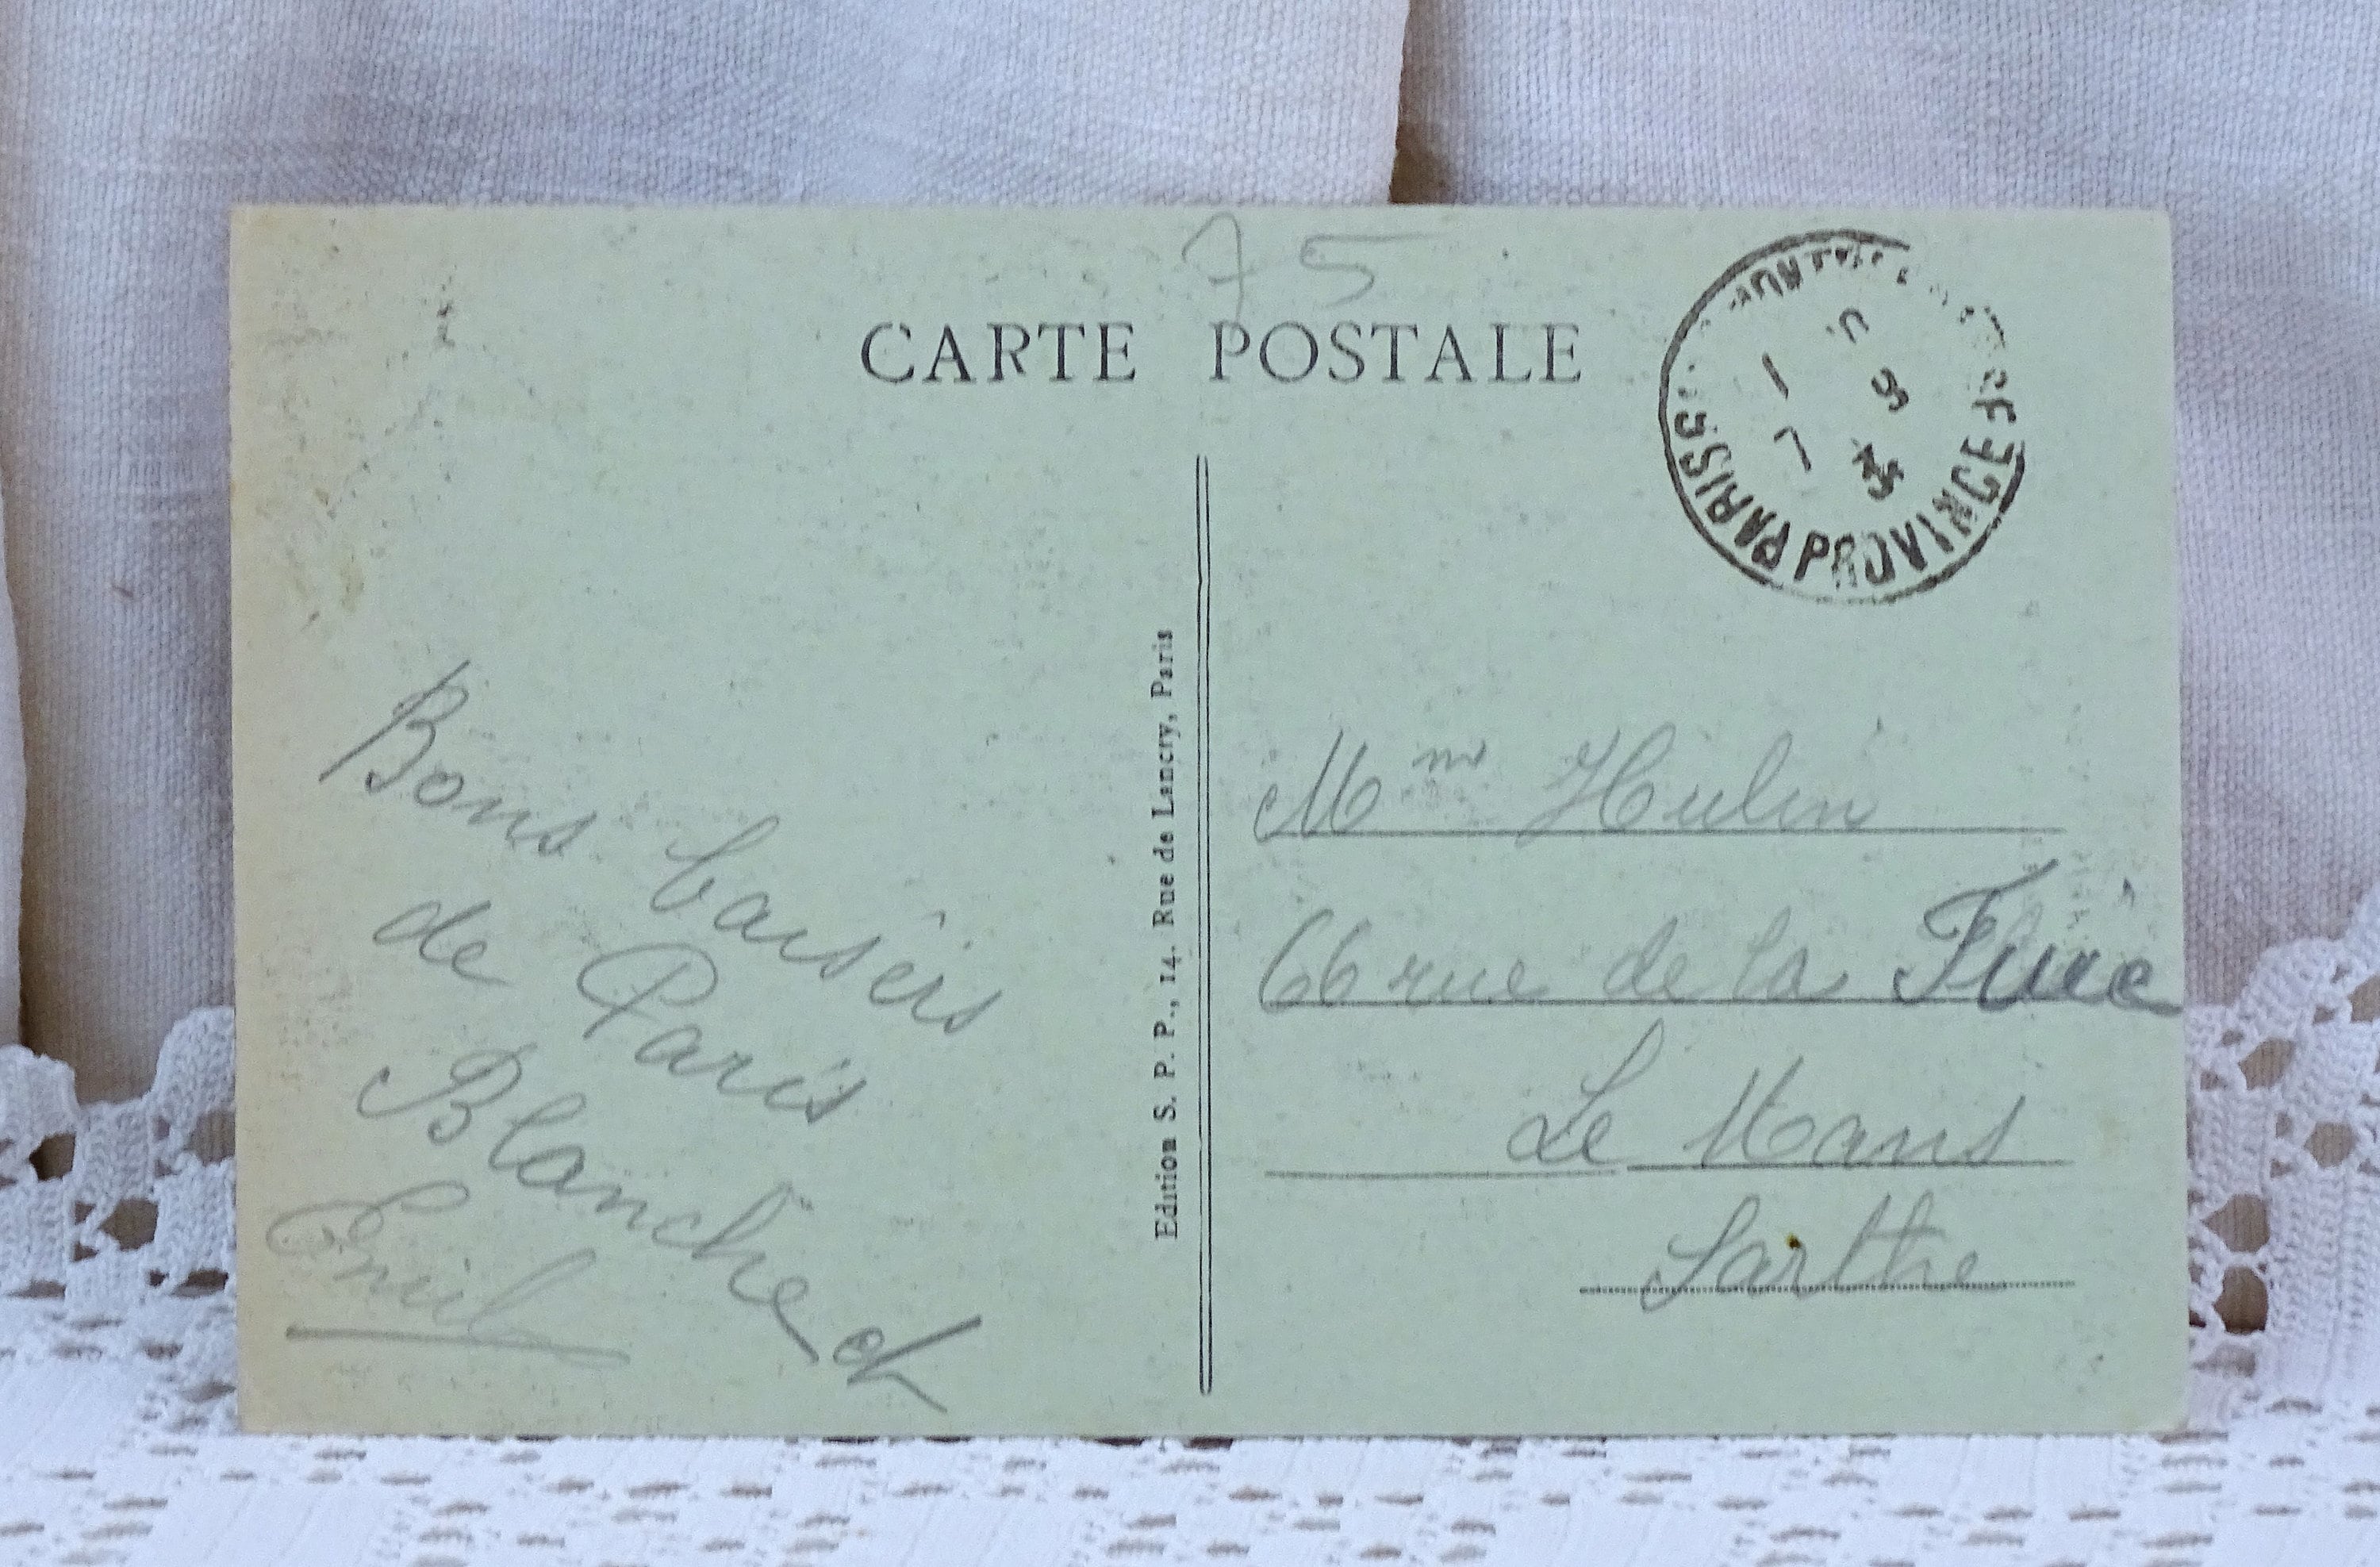 75
CARTE POSTALE
PARIS PROVINCE
Bons baisers
de Paris
Blanche et
Emil
Edition S. P. P., 14. Rue de Lancry, Paris
Mme Hulin
66 rue de la
Le Mans
Sarthe